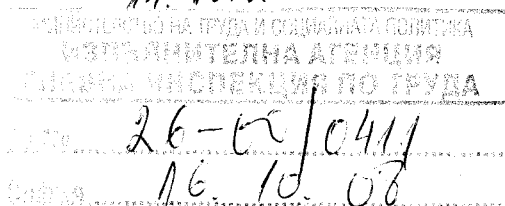 МИНИСТЕРСТВО НА ТРУДА И СОЦИАЛНАТА ПОЛИТИКА
ИЗПЪЛНИТЕЛНА АГЕНЦИЯ
ГЛАВНА ИНСПЕКЦИЯ ПО ТРУДА
26-00/0411
16. 10. 08